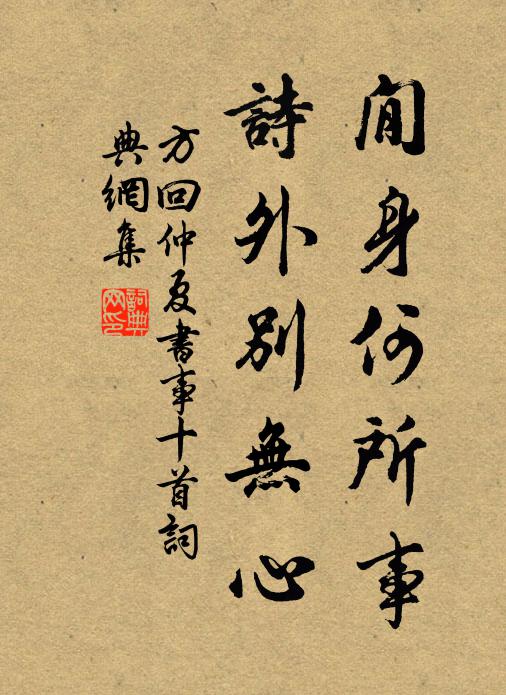 閒身何所事
詩外別無心
方回仲夏書事十首詞
典網集
詞典
网印